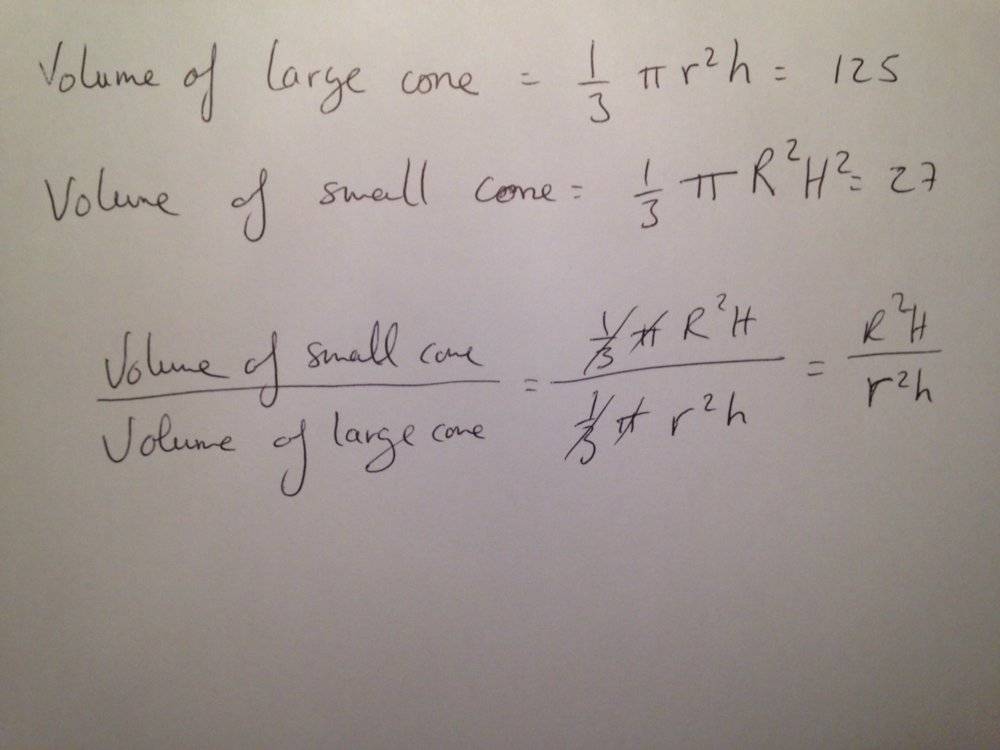 Volume of large cone = 1/3 π r²h = 125
Volume of small cone = 1/3 π R²H² = 27
Volume of small cone / Volume of large cone = 1/3 π R²H / 1/3 π r²h = R²H / r²h